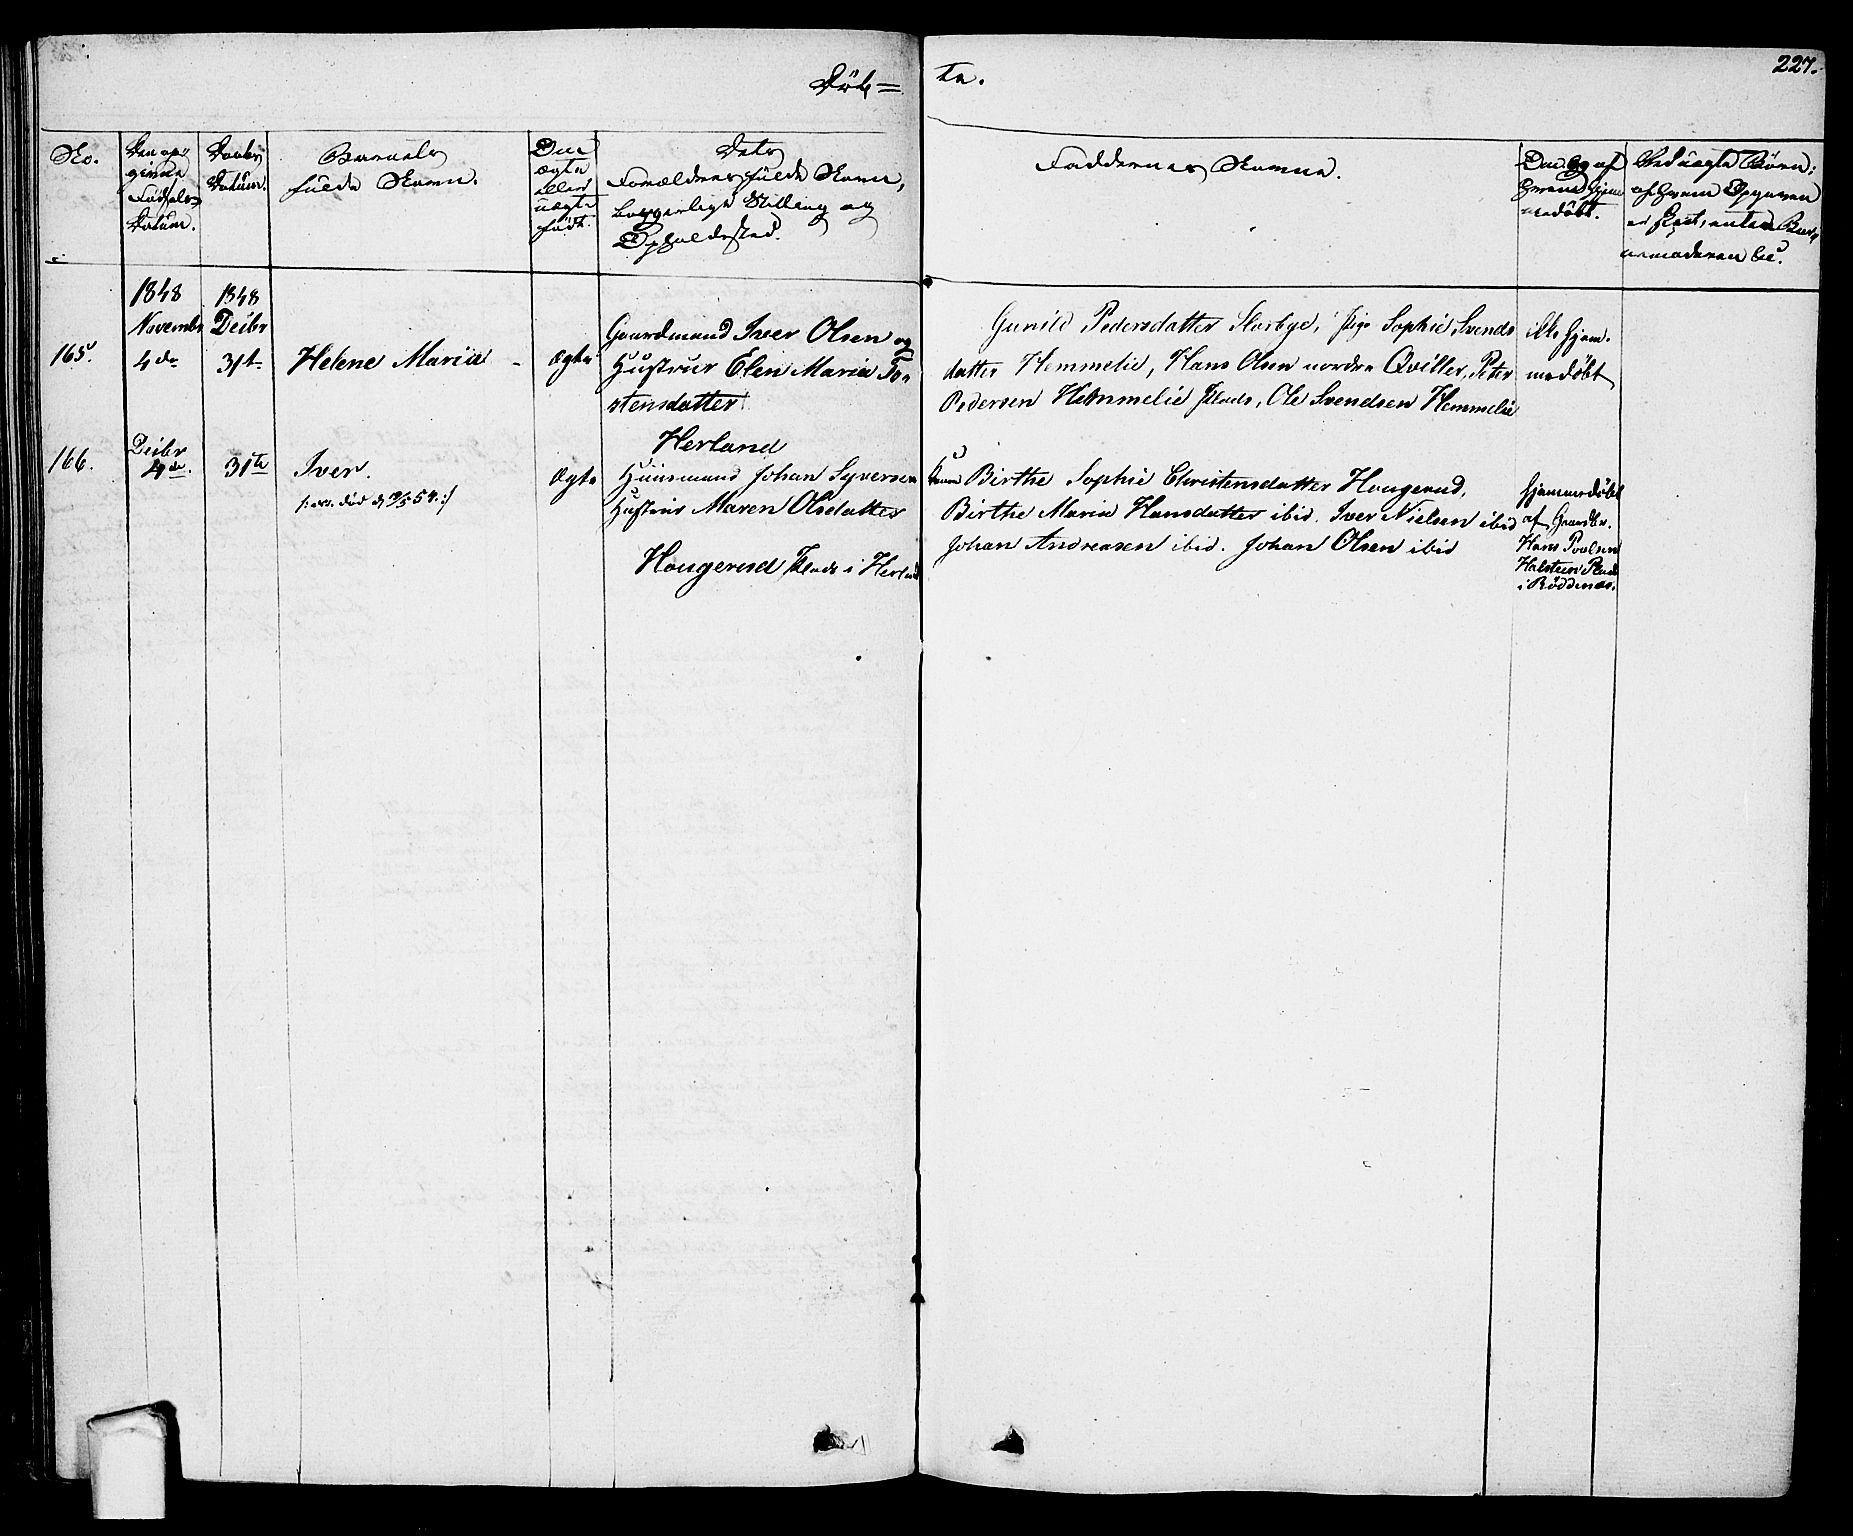 Døb=
te.
227.
No.
Den op=
givne
Fødsels
Datum.
Daabs
Datum.
Barnets
fulde Navn.
Om
ægte
eller
uægte
født.
Dets
Forældres fulde Navn,
borgerlige Stilling og
Opholdssted.
Faddernes Navne.
Om og af
hvem hjem=
medøbt.
Ved uægte Børn:
af hvem Opgaven
er skeet, enten Bar=
nemoderen
1848
Novembr
1848
Decbr
165.
4de
31te
Helene Maria
ægte
Gaardmand Iver Olsen og
Hustrue Elen Maria To=
stensdatter
Herland
Gunild Pedersdatter Slorbye, Pige Sophie Svends
datter Hemmelie, Hans Olsen nordre Qviller, Peter
Pedersen Hemmelie Plads, Ole Svendsen Hemmelie
ikke hjem=
medøbt
166.
Decbr
4de
31te
Iver.
død d 19/5 54.
ægte
Huusmand Johan Syversen
Hustrue Maren Olsdatter
Hougerud Plads i Herland
Konen Birthe Sophie Christensdatter Hougerud,
Birthe Maria Hansdatter ibid. Iver Nielsen ibid
Johan Andreasen ibid. Johan Olsen ibid
hjemmedøbt
af Gaardbr.
Hans Poulsen
Halsteen Plads
i Rødenæs.